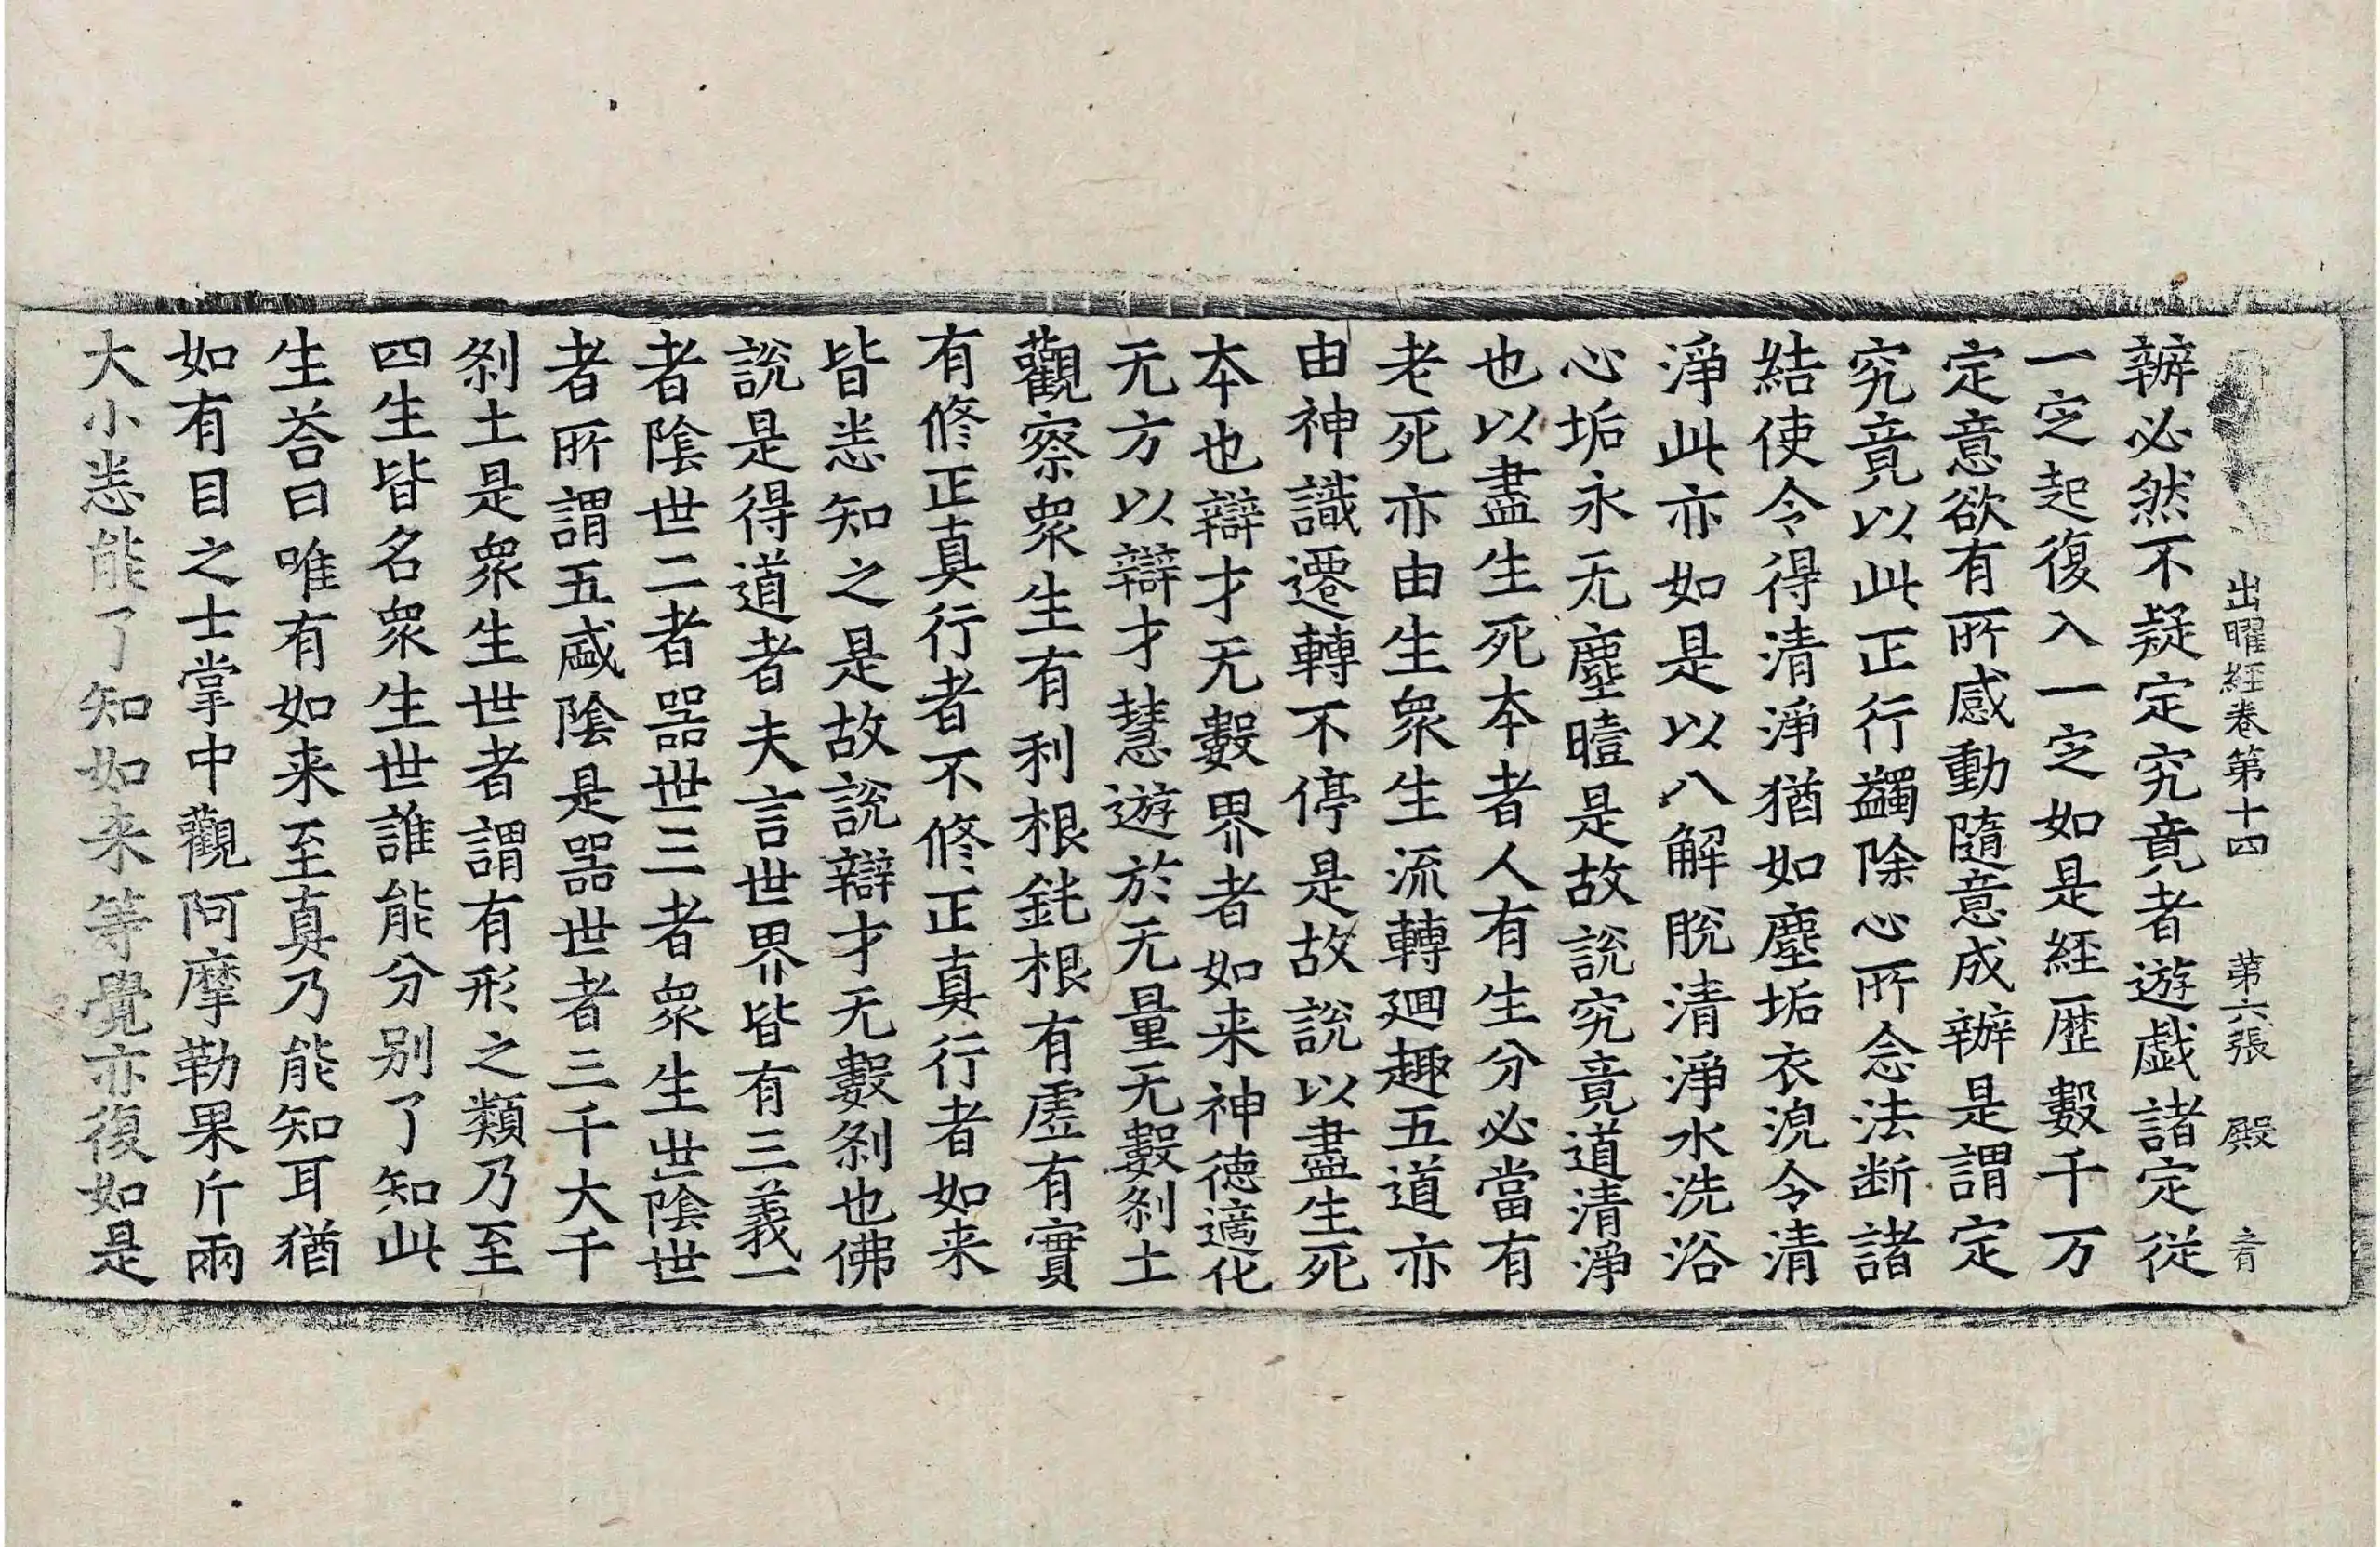 出曜経卷第十四 第六張 殿
辦必然不疑定究竟者遊戯諸定従
一㝎起復入一㝎如是経歴數千万
定意欲有所感動隨意成辦是謂定
究竟以此正行蠲除心所念法断諸
結使令得清淨猶如塵垢衣浼令清
淨此亦如是以八解脫清淨水洗浴
心垢永无塵曀是故説究竟道清淨
也以盡生死本者人有生分必當有
老死亦由生衆生流轉廻趣五道亦
由神識遷轉不停是故説以盡生死
本也辯才无數界者如来神德適化
无方以辯才慧遊於无量无數刹土
觀察衆生有利根鈍根有虛有實
有修正真行者不修正真行者如来
皆悉知之是故説辯才无數刹也佛
説是得道者夫言世界皆有三義一
者陰世二者器世三者衆生世陰世
者所謂五盛陰是器世者三千大千
刹土是衆生世者謂有形之類乃至
四生皆名衆生世誰能分别了知此
生荅曰唯有如来至真乃能知耳猶
如有目之士掌中觀阿摩勒果斤兩
大小悉能了知如来等覺亦復如是